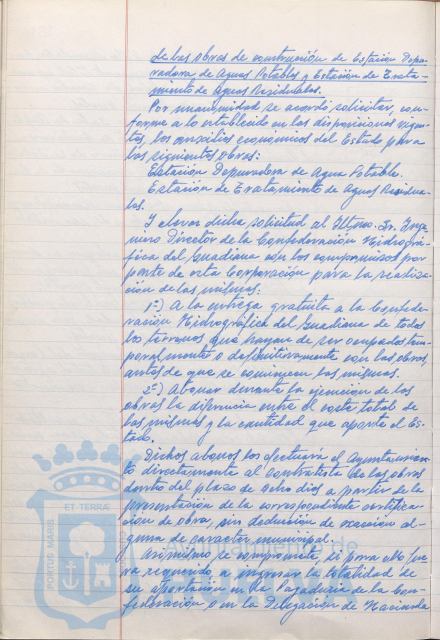 de las obras de construcción de Estación Depu-
radora de Aguas Potables y Estación de Trata-
miento de Aguas Residuales.
Por unanimidad se acordó solicitar, con-
forme a lo establecido en las disposiciones vigen-
tes, los auxilios económicos del Estado para
las siguientes obras:
Estación Depuradora de Agua Potable.
Estación de Tratamiento de Aguas Residua-
les.
Y elevar dicha solicitud al Iltmo. Sr. Inge-
niero Director de la Confederación Hidrográ-
fica del Guadiana con los compromisos por
parte de esta Corporación para la realiza-
ción de las mismas.
1º) A la entrega gratuita a la Confede-
ración Hidrográfica del Guadiana de todos
los terrenos que hayan de ser ocupados tem-
poralmente o definitivamente con las obras,
antes de que se comiencen las mismas.
2º) Abonar durante la ejecución de las
obras la diferencia entre el coste total de
las mismas y la cantidad que aporte el Es-
tado.
Dichos abonos los efectuará el Ayuntamien-
to directamente al Contratista de las obras
dentro del plazo de ocho días a partir de la
presentación de la correspondiente certifica-
ción de obra, sin deducción de exacción al-
guna de carácter municipal.
Asimismo se compromete, si para ello fue-
ra requerido a ingresar la totalidad de
su aportación en la Pagaduría de la Con-
federación o en la Delegación de Hacienda
PORTUS MARIS
ET TERRÆ